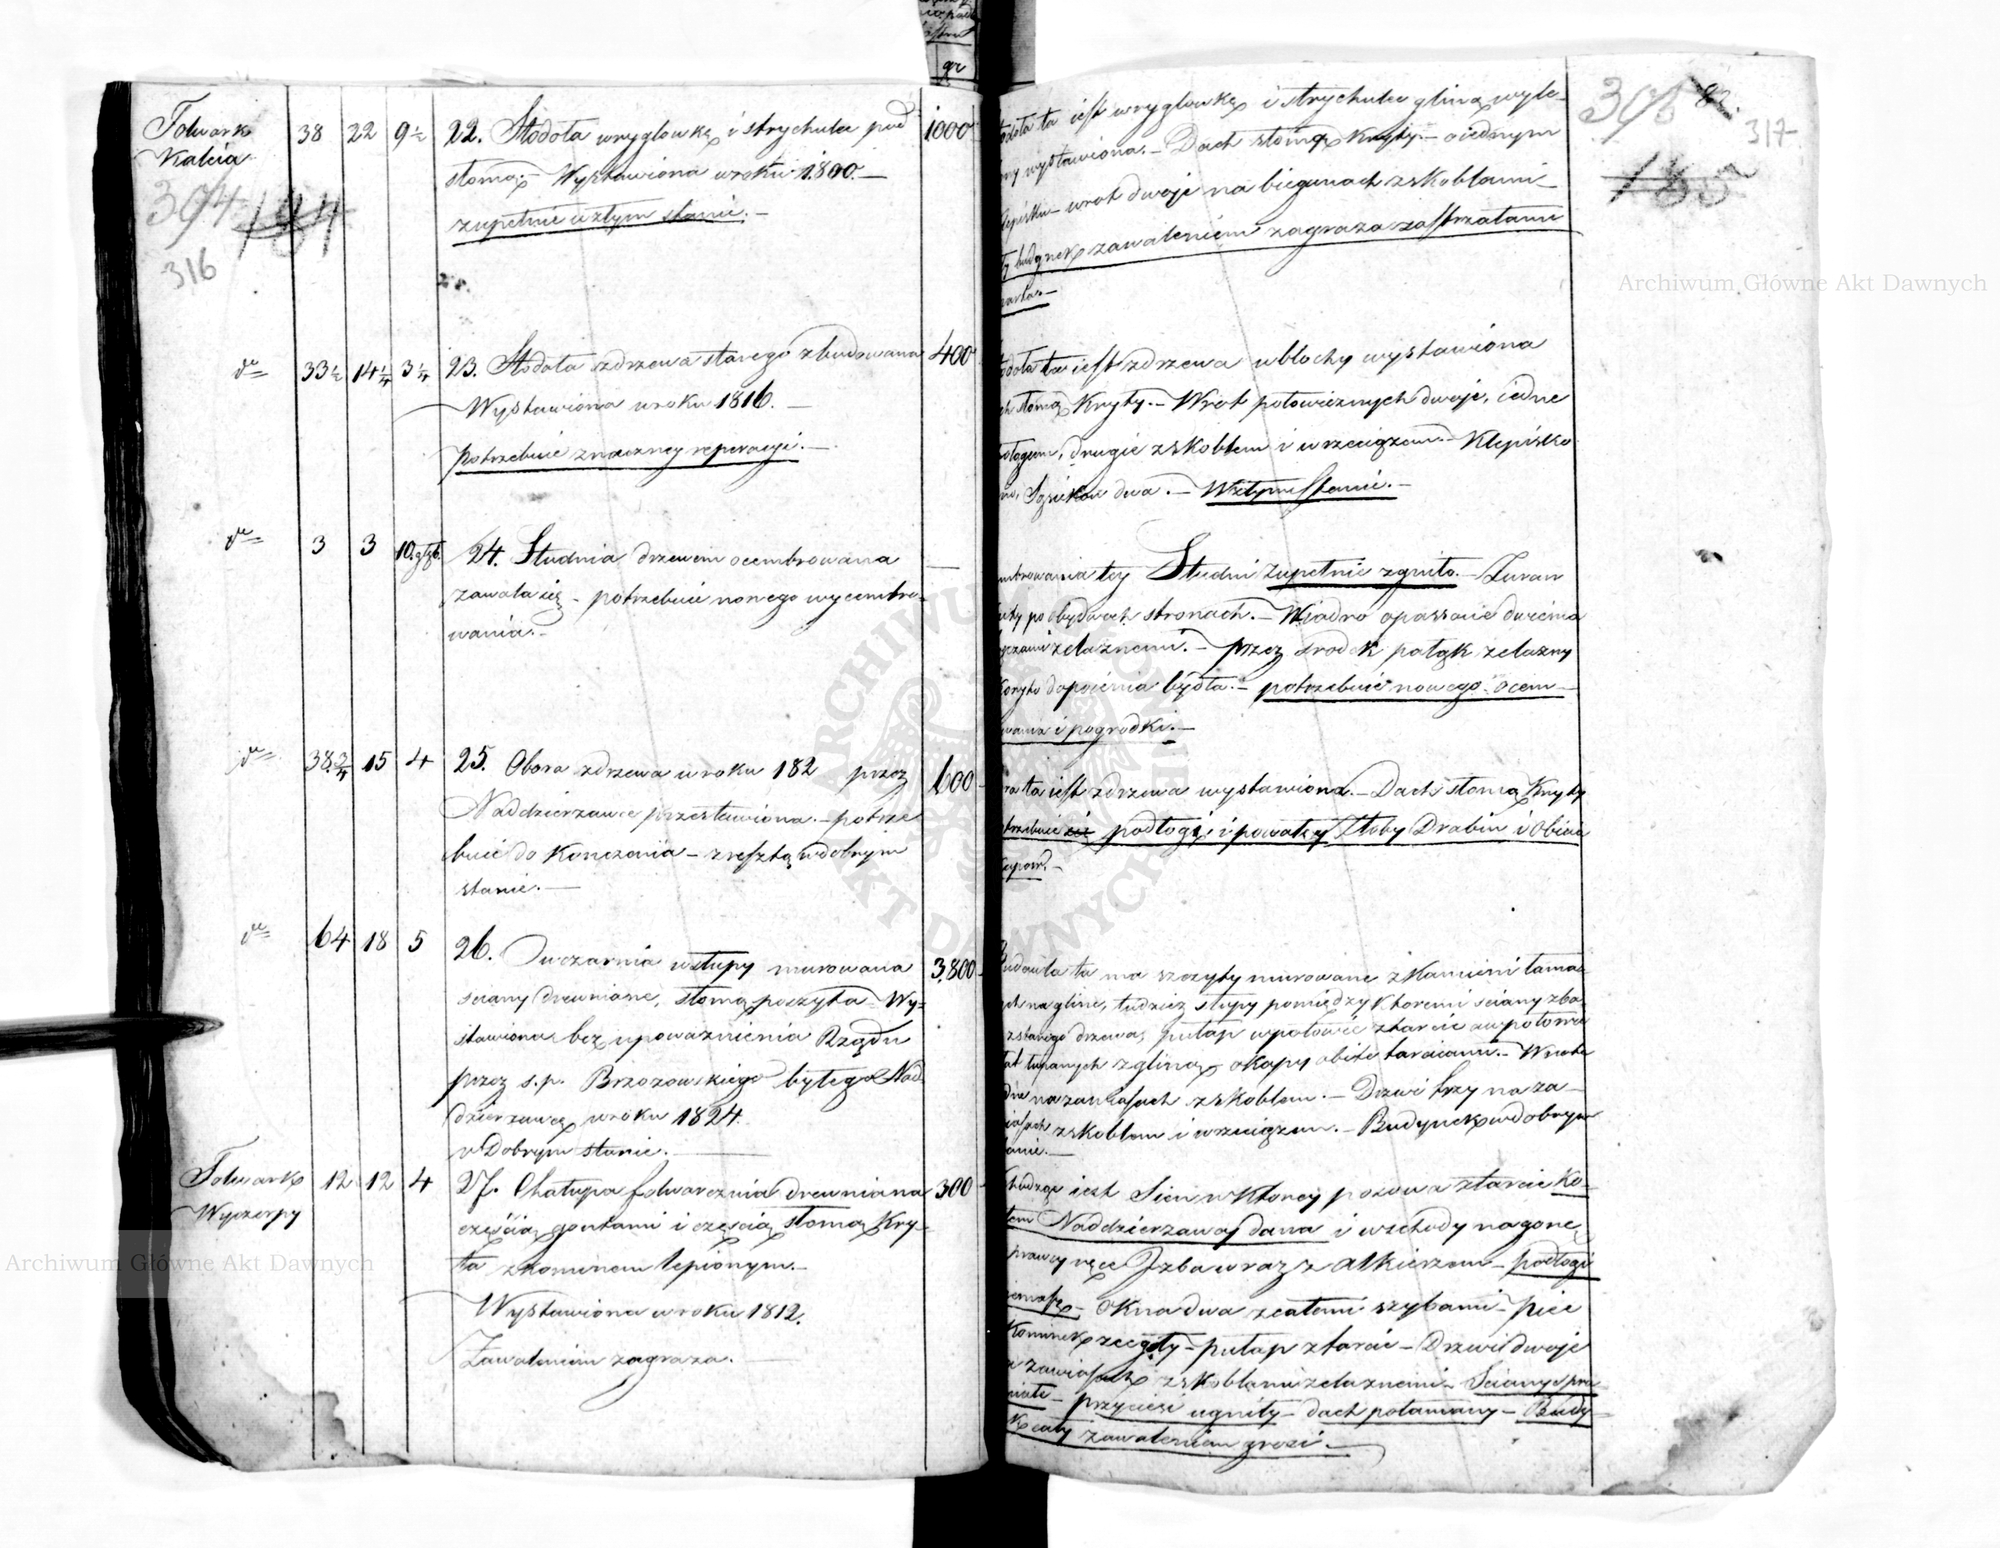 Folwark
Kalcia
394 184
316
38 22 9½ 22. Stodoła w ryglowkę i strychulec pod 1000
słomą. – Wystawiona w roku 1800. –
zupełnie w złym stanie. –
dto 33½ 14¼ 3¼ 23. Stodoła z drzewa starego zbudowana 400
Wystawiona w roku 1816. –
potrzebuie znaczney reperacyi. –
dto 3 3 10 głęb. 24. Studnia drzewem ocembrowana –
zawala się – potrzebuie nowego wycembro-
wania. –
dto 38¾ 15 4 25. Obora z drzewa w roku 182 przez 600
Naddzierzawcę przestawiona. – potrze
buie do kończenia – z resztą w dobrym
stanie. –
dto 64 18 5 26. Owczarnia w słupy murowana 3,800
sciany drewniane, słomą poszyta – Wy-
stawiona bez upoważnienia Rządu
przez s.p. Brzozowskiego byłego Nad
dzierzawcę w roku 1824.
w Dobrym stanie. –
Folwark
Wyczerpy
12 12 4 27. Chałupa folwarczna drewniana 300
częścią gontami i częścią słomą kry-
ta z kominem lepionym. –
Wystawiona w roku 1812.
Zawaleniem zagraża. –
ta iest w ryglowkę i strychulec gliną wyle-
wystawiona. – Dach słomą kryty. – o iednym
wrot dwoje na biegunach z skoblami –
budynek zawaleniem zagraża zastrzałami
395 82.
317
185
ta iest z drzewa w blochy wystawiona
słomą kryty. – Wrot połowicznych dwoje, iedne
drugie z skoblem i wrzeciązem. – Klepisko
Sąsieków dwa. – W złym stanie. –
tey Studni zupełnie zgniło. – Żuraw
po obydwoch stronach. – Wiadro opasane dwiema
żelaznemi. – przez srodek pałąk żelazny
do poienia bydła. – potrzebuie nowego ocem-
i pogrodki. –
ta iest z drzewa wystawiona. – Dach słomą kryty
podłogi, i powały Żłoby Drabin i Obicia
ta ma szczyty murowane z kamieni łama-
na glinę, tudziez słupy pomiędzy ktoremi sciany zbu-
z starego drzewa, pułap w połowie z tarcic a w połowie
łupanych z gliną, okapy obite tarcicami. – Wrota
na zawiasach z skoblem. – Drzwi trzy na za-
z skoblem i wrzeciązem. – Budynek w dobrym
iest Sień w ktorey posowa z tarcic ko-
Naddzierzawcy dana i wschody na gorę
ręce Izba wraz z alkierzem – podłogi
– okna dwa z całemi szybami – piec
kominek z cegły – pułap z tarcic – Drzwi dwoje
zawiasach z skoblami żelaznemi – Sciany spru-
– przyciesi ugniły – dach połamany – Budy-
cały zawaleniem grozi. –
Archiwum Główne Akt Dawnych
Archiwum Główne Akt Dawnych
ARCHIWUM GŁÓWNE AKT DAWNYCH